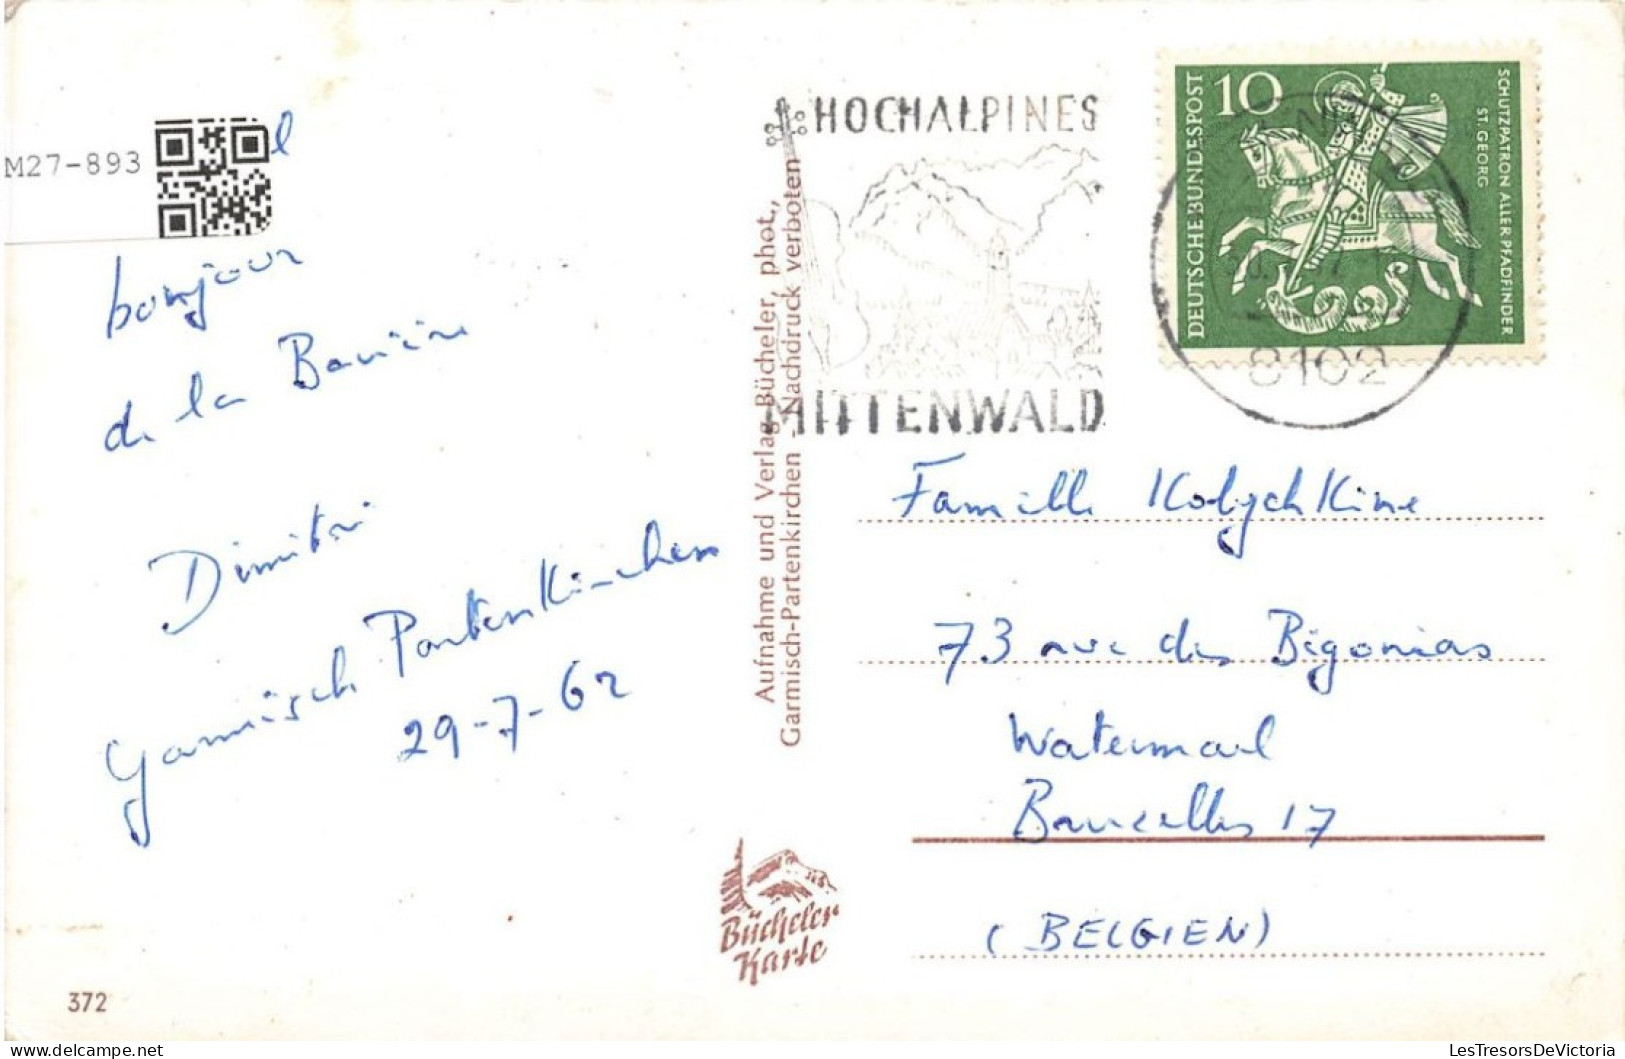 M27-893
bonjour
de la Bavière
Dimitri
Garmisch Partenkirchen
29-7-62
372
Aufnahme und Verlag Bücheler, phot.,
Garmisch-Partenkirchen - Nachdruck verboten
Bücheler
Karte
HOCHALPINES
MITTENWALD
10
DEUTSCHE BUNDESPOST
SCHUTZPATRON ALLER PFADFINDER
ST. GEORG
8102
Famille KolychKine
73 ave des Bigonias
Watermael
Bruxelles 17
(BELGIEN)
LesTresorsDeVictoria